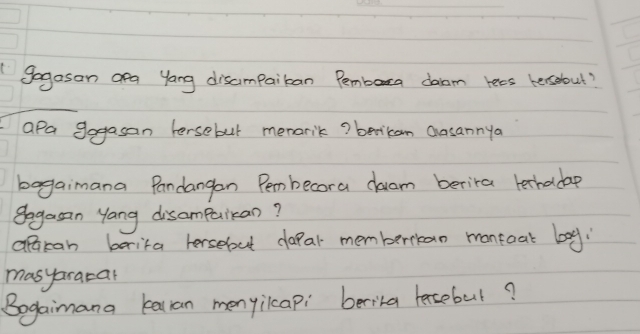 gagasan apa yang disampaikan Pembaca dalam teks tersebut?
apa gagasan tersebut menarik? berikan alasannya
bagaimana Pandangan Pembecara dalam berita terhadap
gagasan yang disampaikan?
apakah berita tersebut dapat memberikan manfaat bagi
masyarakat
Bagaimana kalian menyikapi berita tersebut?